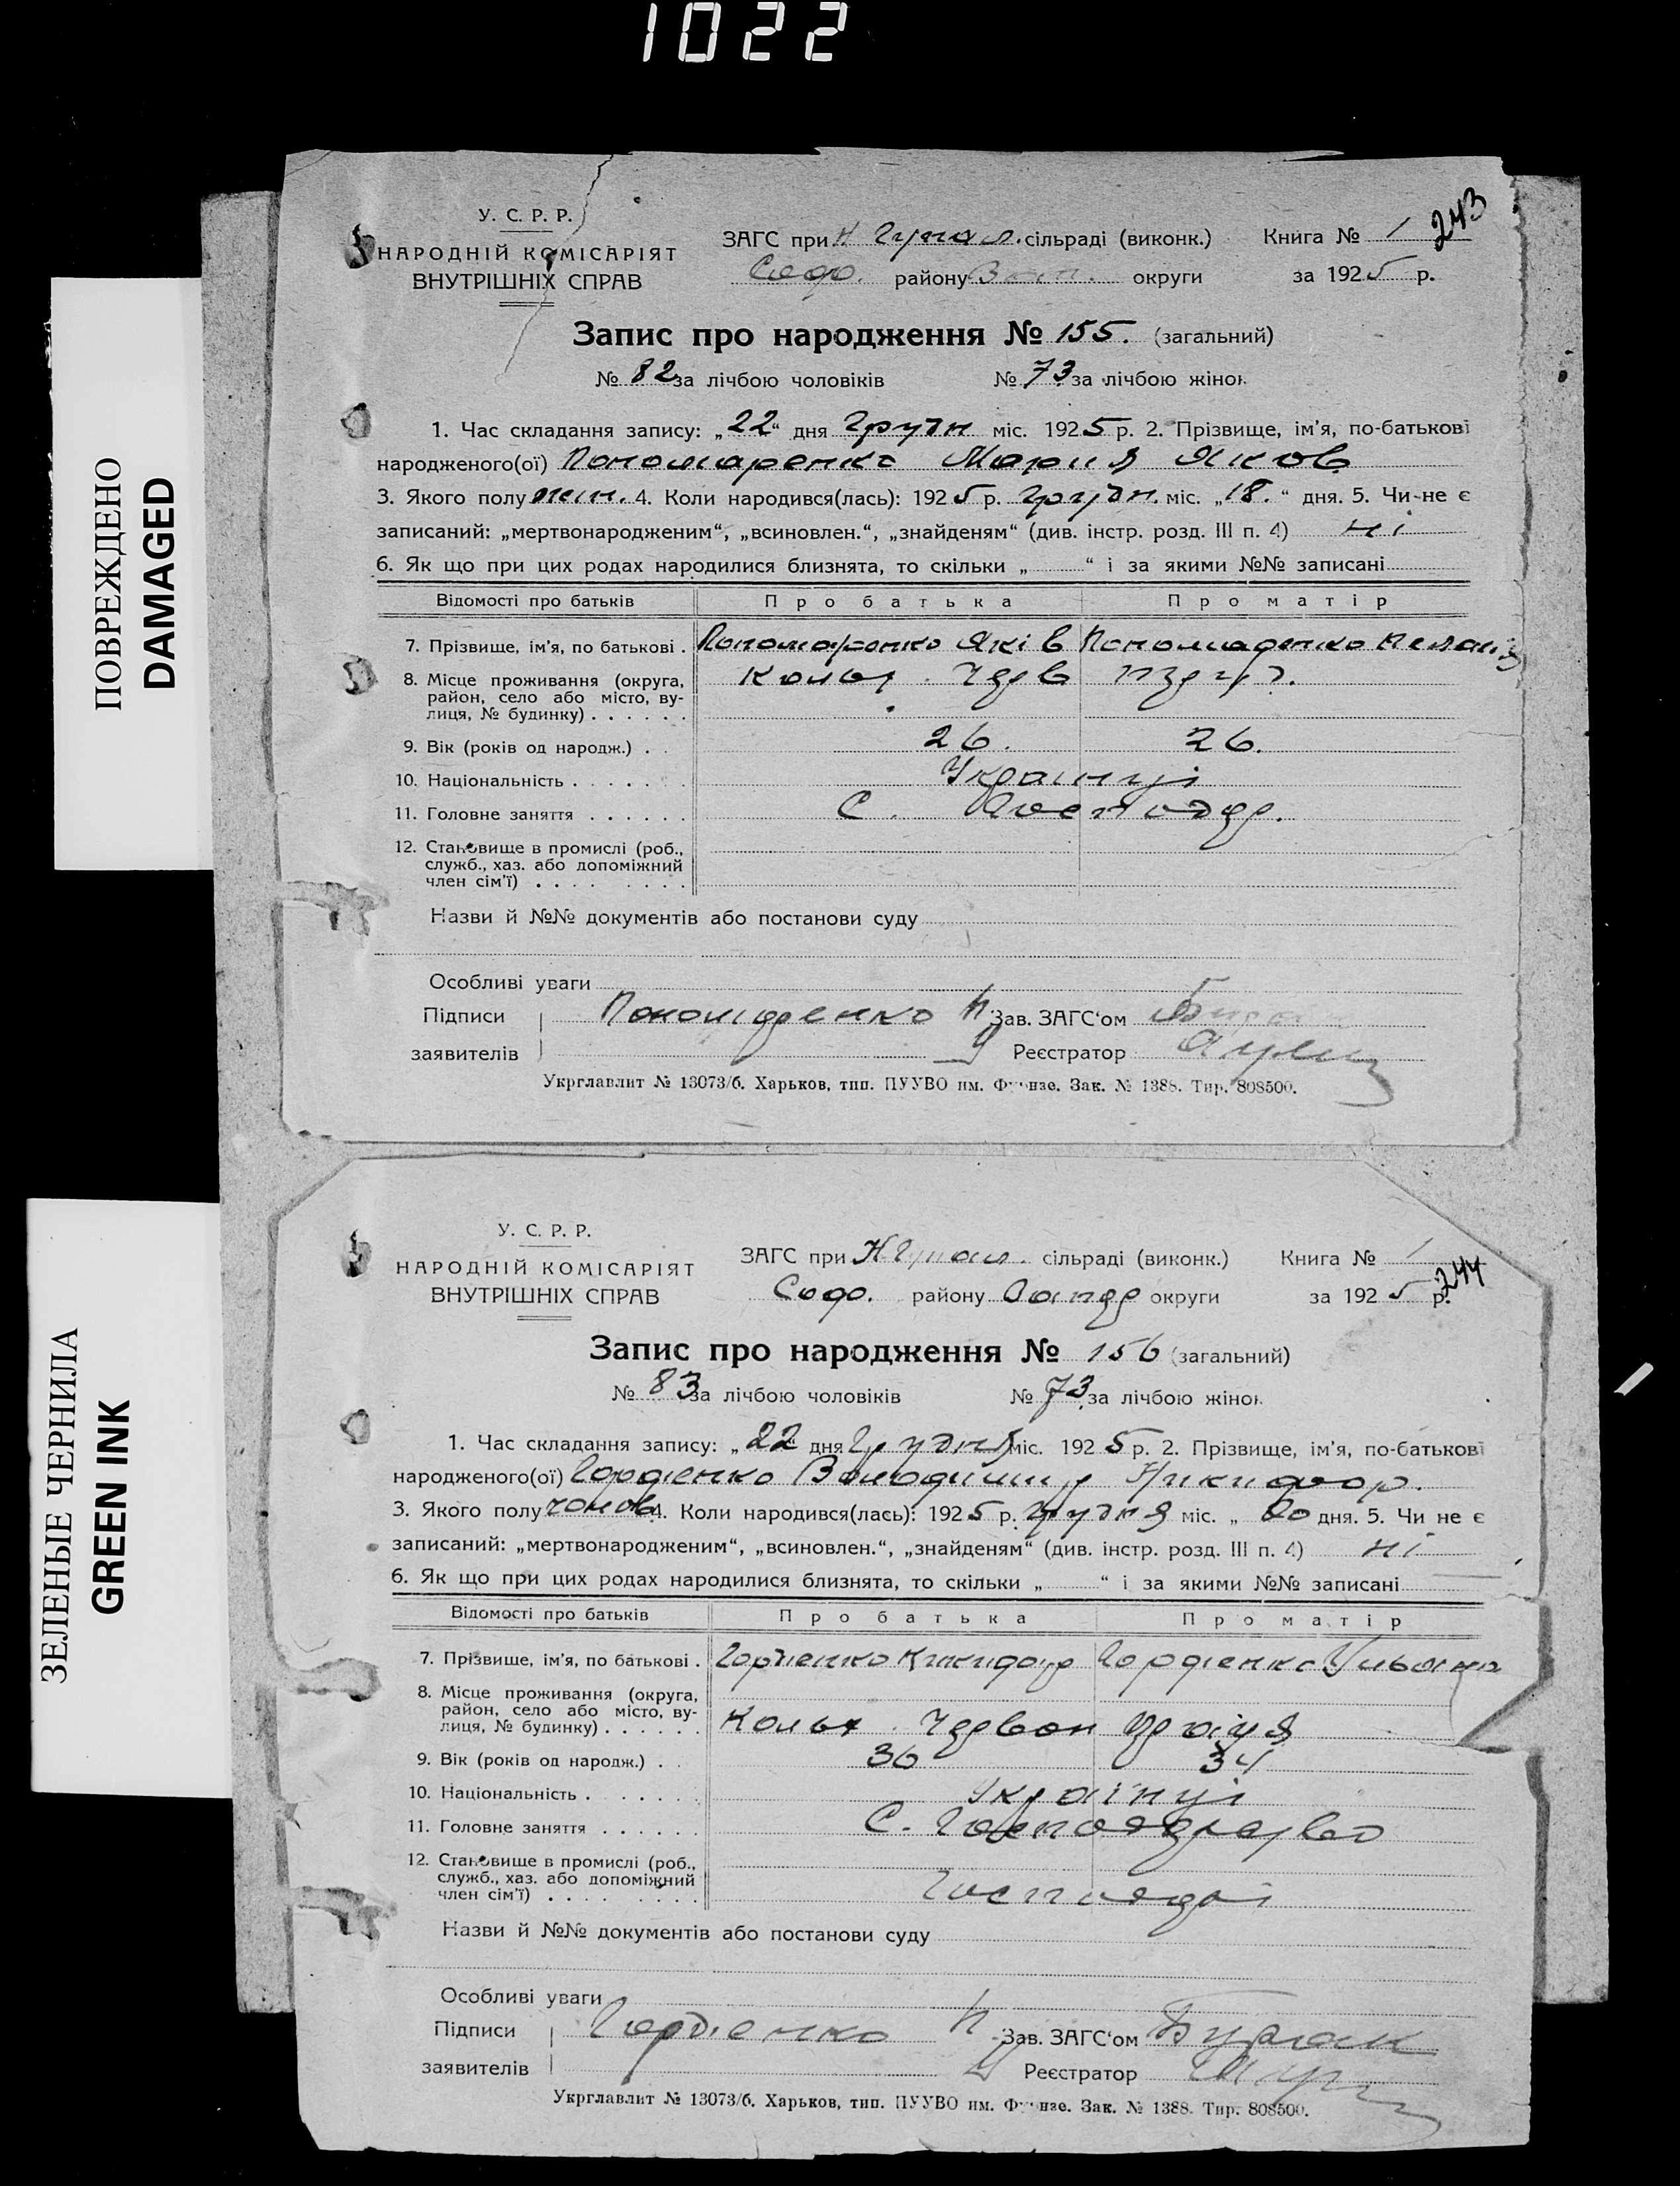 1022
ПОВРЕЖДЕНО
DAMAGED
ЗЕЛЕНЫЕ ЧЕРНИЛА
GREEN INK
243
У. С. Р. Р.
НАРОДНІЙ КОМІСАРІЯТ
ВНУТРІШНІХ СПРАВ
ЗАГС при Н сільраді (виконк.) Книга № 1
Софо. району округи за 1925 р.
Запис про народження № 155. (загальний)
№ 82 за лічбою чоловіків № 73 за лічбою жінок
1. Час складання запису: „22“ дня Грудн міс. 1925 р. 2. Прізвище, ім'я, по-батькові
народженого(ої) Пономаренко Мария Яков
3. Якого полу жін. 4. Коли народився(лась): 1925 р. Грудн. міс. „18.“ дня. 5. Чи не є
записаний: „мертвонародженим“, „всиновлен.“, „знайденям“ (див. інстр. розд. III п. 4) ні
6. Як що при цих родах народилися близнята, то скільки „ “ і за якими №№ записані
Відомості про батьків Про батька Про матір
7. Прізвище, ім'я, по батькові . Пономаренко Які в Пономаренко
8. Місце проживання (округа,
район, село або місто, ву-
лиця, № будинку) . . . . . .
9. Вік (років од народж.) . . 26. 26.
10. Національність . . . . . . Українці
11. Головне заняття . . . . . . С. Господар.
12. Становище в промислі (роб.,
служб., хаз. або допоміжний
член сім'ї) . . . . . . . .
Назви й №№ документів або постанови суду
Особливі уваги
Підписи Пономаренко Зав. ЗАГС'ом
заявителів Реєстратор
Укрглавлит № 13073/б. Харьков, тип. ПУУВО им. Фрунзе. Зак. № 1388. Тир. 808500.
244
У. С. Р. Р.
НАРОДНІЙ КОМІСАРІЯТ
ВНУТРІШНІХ СПРАВ
ЗАГС при Н сільраді (виконк.) Книга № 1
Софо. району округи за 1925 р.
Запис про народження № 156 (загальний)
№ 83 за лічбою чоловіків № 73 за лічбою жінок
1. Час складання запису: „22“ дня Грудня міс. 1925 р. 2. Прізвище, ім'я, по-батькові
народженого(ої) Гордієнко Володимир Никифор.
3. Якого полу чолов 4. Коли народився(лась): 1925 р. Грудня міс. „ 20 дня. 5. Чи не є
записаний: „мертвонародженим“, „всиновлен.“, „знайденям“ (див. інстр. розд. III п. 4) ні
6. Як що при цих родах народилися близнята, то скільки „ “ і за якими №№ записані
Відомості про батьків Про батька Про матір
7. Прізвище, ім'я, по батькові . Гордіенко Никифор Гордіенко Ульяна
8. Місце проживання (округа,
район, село або місто, ву-
лиця, № будинку) . . . . . .
9. Вік (років од народж.) . . 36 34
10. Національність . . . . . . Українці
11. Головне заняття . . . . . . С. Господарство
12. Становище в промислі (роб.,
служб., хаз. або допоміжний
член сім'ї) . . . . . . . . Господарі
Назви й №№ документів або постанови суду
Особливі уваги
Підписи Гордіенко Зав. ЗАГС'ом
заявителів Реєстратор
Укрглавлит № 13073/б. Харьков, тип. ПУУВО им. Фрунзе. Зак. № 1388. Тир. 808500.